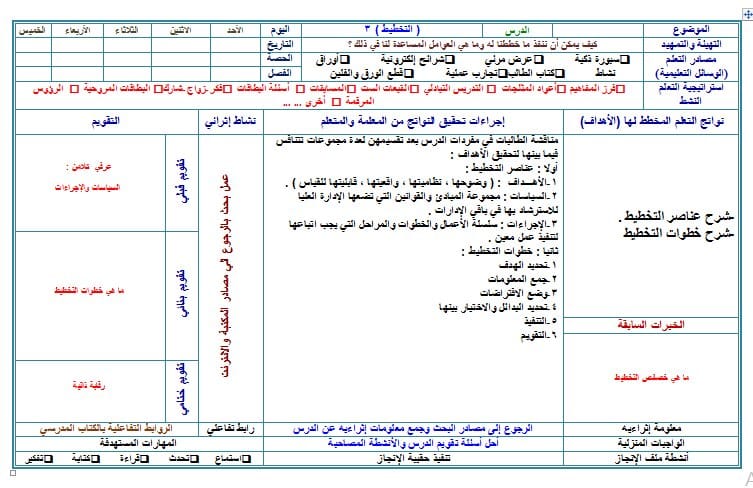 الموضوع
الدرس
( التخطيط ) ٣
اليوم
الأحد
الاثنين
الثلاثاء
الأربعاء
الخميس
التهيئة والتمهيد
كيف يمكن أن ننفذ ما خططنا له وما هي العوامل المساعدة لنا في ذلك ؟
التاريخ
مصادر التعلم
(الوسائل التعليمية)
❑سبورة ذكية ❑عرض مرئي ❑شرائح إلكترونية ❑أوراق
نشاط ❑كتاب الطالب❑تجارب عملية ❑قطع الورق والفلين
الحصة
الفصل
استراتيجية التعلم
النشط
□فرز المفاهيم □أعواد المثلجات □ التدريس التبادلي □القبعات الست □ المسابقات □ أسئلة البطاقات □فكر ـزواج ـشارك□ البطاقات المروحية □ الرؤوس
المرقمة □ أخرى ... ...
نواتج التعلم المخطط لها (الأهداف)
إجراءات تحقيق النواتج من المعلمة والمتعلم
نشاط إثرائي
التقويم
-شرح عناصر التخطيط .
-شرح خطوات التخطيط
مناقشة الطالبات في مفردات الدرس بعد تقسيمهن لعدة مجموعات تتنافس
فيما بينها لتحقيق الأهداف :
أولا : عناصر التخطيط :
١-الأهداف : ( وضوحها ، نظاميتها ، واقعيتها ، قابليتها للقياس ) .
٢-السياسات : مجموعة المبادئ والقوانين التي تضعها الإدارة العليا
للاسترشاد بها في باقي الإدارات .
٣-الإجراءات : سلسلة الأعمال والخطوات والمراحل التي يجب اتباعها
لتنفيذ عمل معين .
ثانيا : خطوات التخطيط :
١-تحديد الهدف
٢-جمع المعلومات
٣-وضع الافتراضات
٤-تحديد البدائل والاختيار بينها
٥-التنفيذ
٦-التقويم
عمل بحث بالرجوع الى مصادر المكتبة والانترنت
تقويم قبلي
عرفي كلامن :
السياسات والإجراءات
تقويم بنائي
ما هي خطوات التخطيط
تقويم ختامي
رقابة ذاتية
الخبرات السابقة
ما هي خصائص التخطيط
معلومة إثراءيه
الرجوع إلى مصادر البحث وجمع معلومات إثراءيه عن الدرس
رابط تفاعلي
الروابط التفاعلية بالكتاب المدرسي
الواجبات المنزلية
أحل أسئلة تقويم الدرس والأنشطة المصاحبة
المهارات المستهدفة
أنشطة ملف الإنجاز
تنفيذ حقيبة الإنجاز
❑استماع ❑تحدث ❑قراءة ❑كتابة ❑تفكير